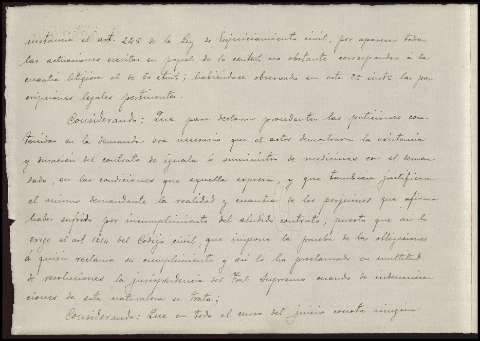 instancia el art. 248 de la Ley de Enjuiciamiento civil, por aparecer todas
las actuaciones escritas en papel de la no obstante corresponder a la
cuantía litigiosa el de ; habiéndose observado en este las pres
cripciones legales pertinentes.
Considerando: Que para declarar procedentes las peticiones con-
tenidas en la demanda era necesario que el actor demostrara la existencia
y duración del contrato de iguala ó suministro de medicinas con el deman-
dado, en las condiciones que aquella expresa, y que tambien justificara
el mismo demandante la realidad y cuantía de los perjuicios que afirma
haber sufrido por incumplimiento del aludido contrato, puesto que así lo
exige el art 1214 del Codigo civil que impone la prueba de las obligaciones
á quien reclama su cumplimiento y así lo ha proclamado en multitud
de resoluciones la jurisprudencia del Tral Supremo cuando de indemniza-
ciones de esta naturaleza se trata;
Considerando: Que en todo el curso del juicio consta ningun